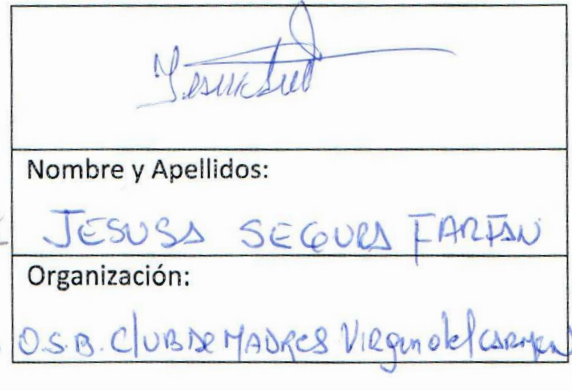 Nombre y Apellidos:
JESUSA SEGURA FARFAN
Organización:
O.S.B. Club de MADRES Virgen del CARMEN